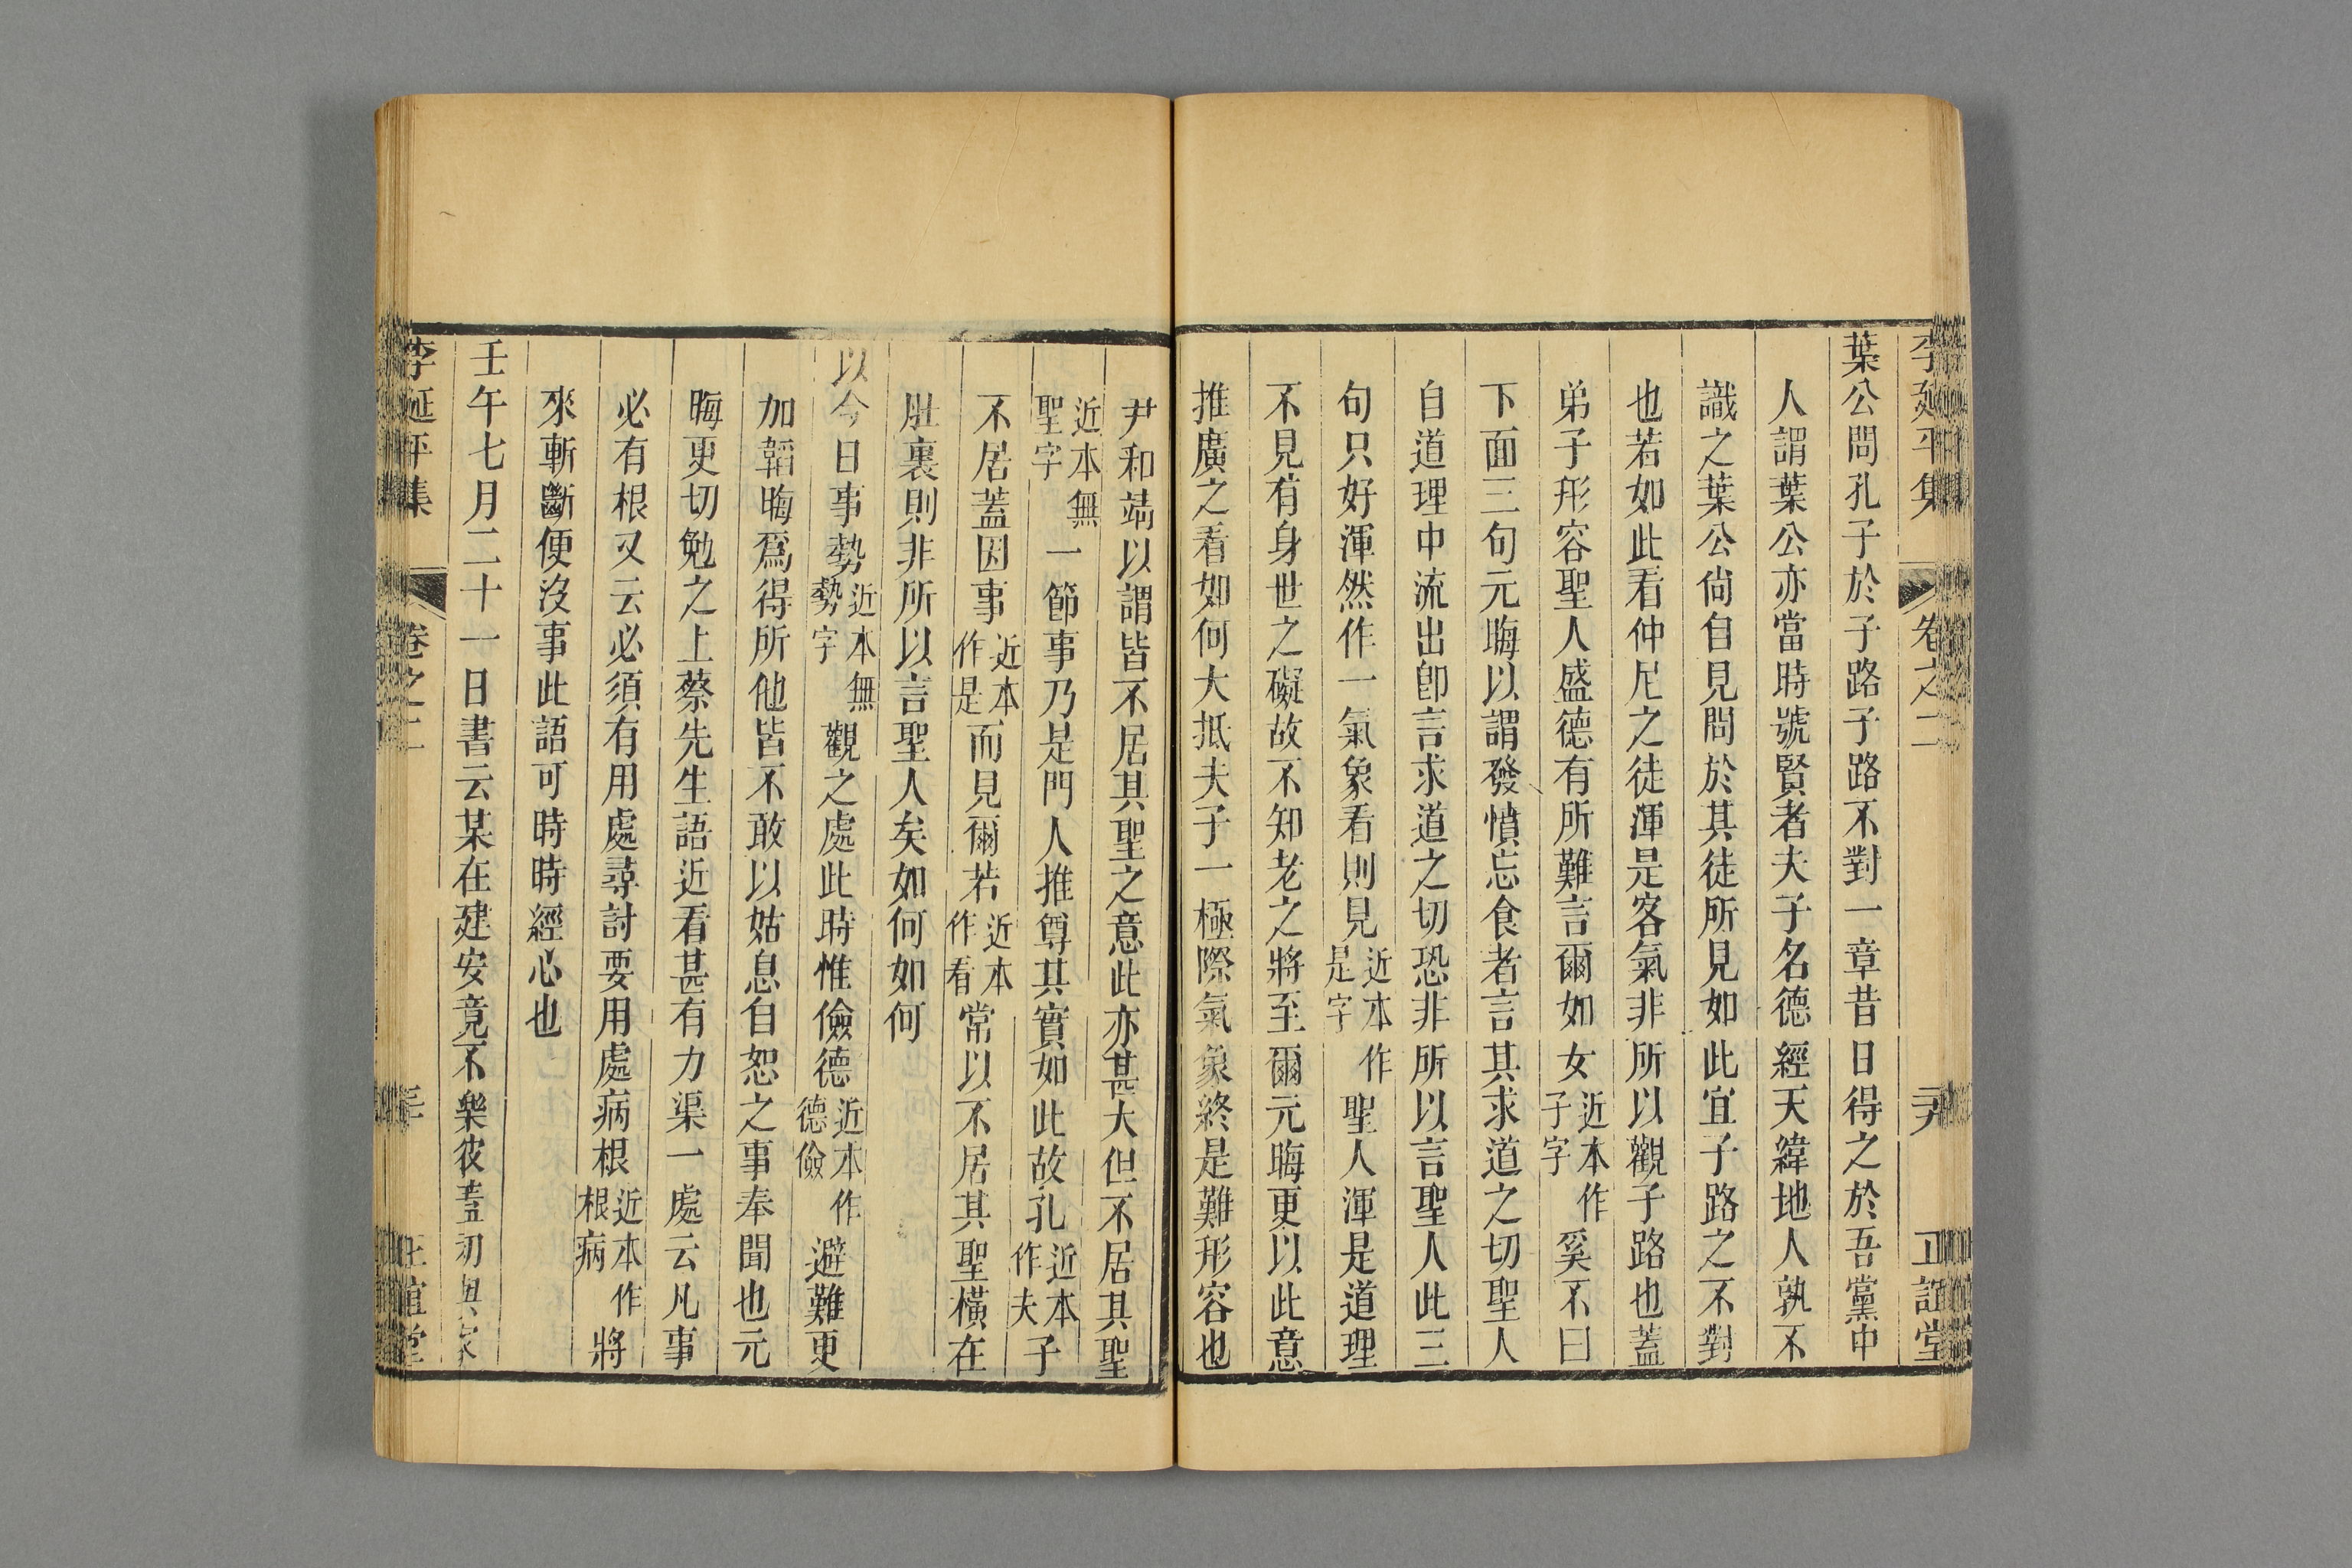 葉公問孔子於子路子路不對一章昔日得之於吾黨中
人謂葉公亦當時號賢者夫子名德經天緯地人孰不
識之葉公尙自見問於其徒所見如此宜子路之不對
也若如此看仲尼之徒渾是客氣非所以觀子路也蓋
弟子形容聖人盛德有所難言爾如女近本作子字奚不曰
下面三句元晦以謂發憤忘食者言其求道之切聖人
自道理中流出卽言求道之切恐非所以言聖人此三
句只好渾然作一氣象看則見近本作是字聖人渾是道理
不見有身世之礙故不知老之將至爾元晦更以此意
推廣之看如何大抵夫子一極際氣象終是難形容也
尹和靖以謂皆不居其聖之意此亦甚大但不居其聖
近本無聖字一節事乃是門人推尊其實如此故孔近本作夫子
不居蓋因事近本作是而見爾若近本作看常以不居其聖橫在
肚裏則非所以言聖人矣如何如何
以今日事勢近本無勢字觀之處此時惟儉德近本作德儉避難更
加韜晦爲得所他皆不敢以姑息自恕之事奉聞也元
晦更切勉之上蔡先生語近看甚有力渠一處云凡事
必有根又云必須有用處尋討要用處病根近本作根病將
來斬斷便沒事此語可時時經心也
壬午七月二十一日書云某在建安竟不樂彼蓋初與家
李延平集 卷之二